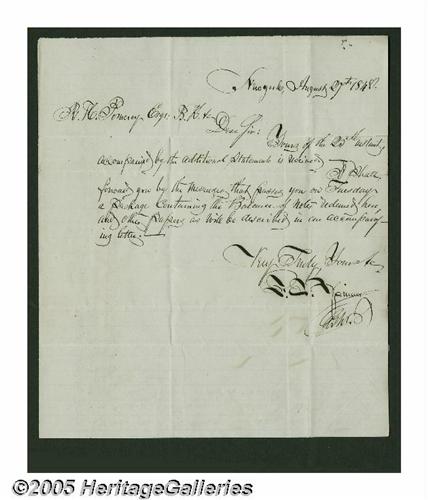 August 27th 1848.
R. H. Pomeroy Esqr.
Dear Sir:
Yours of the 23d instant,
accompanied by the additional Statements is received. I Shall
forward you by the that passes you on Tuesday
a package Containing the Balance of Notes redeemed here
and other papers as will be described in an accompany-
ing letter.
Very Truly Yours &c
©2005 HeritageGalleries.com